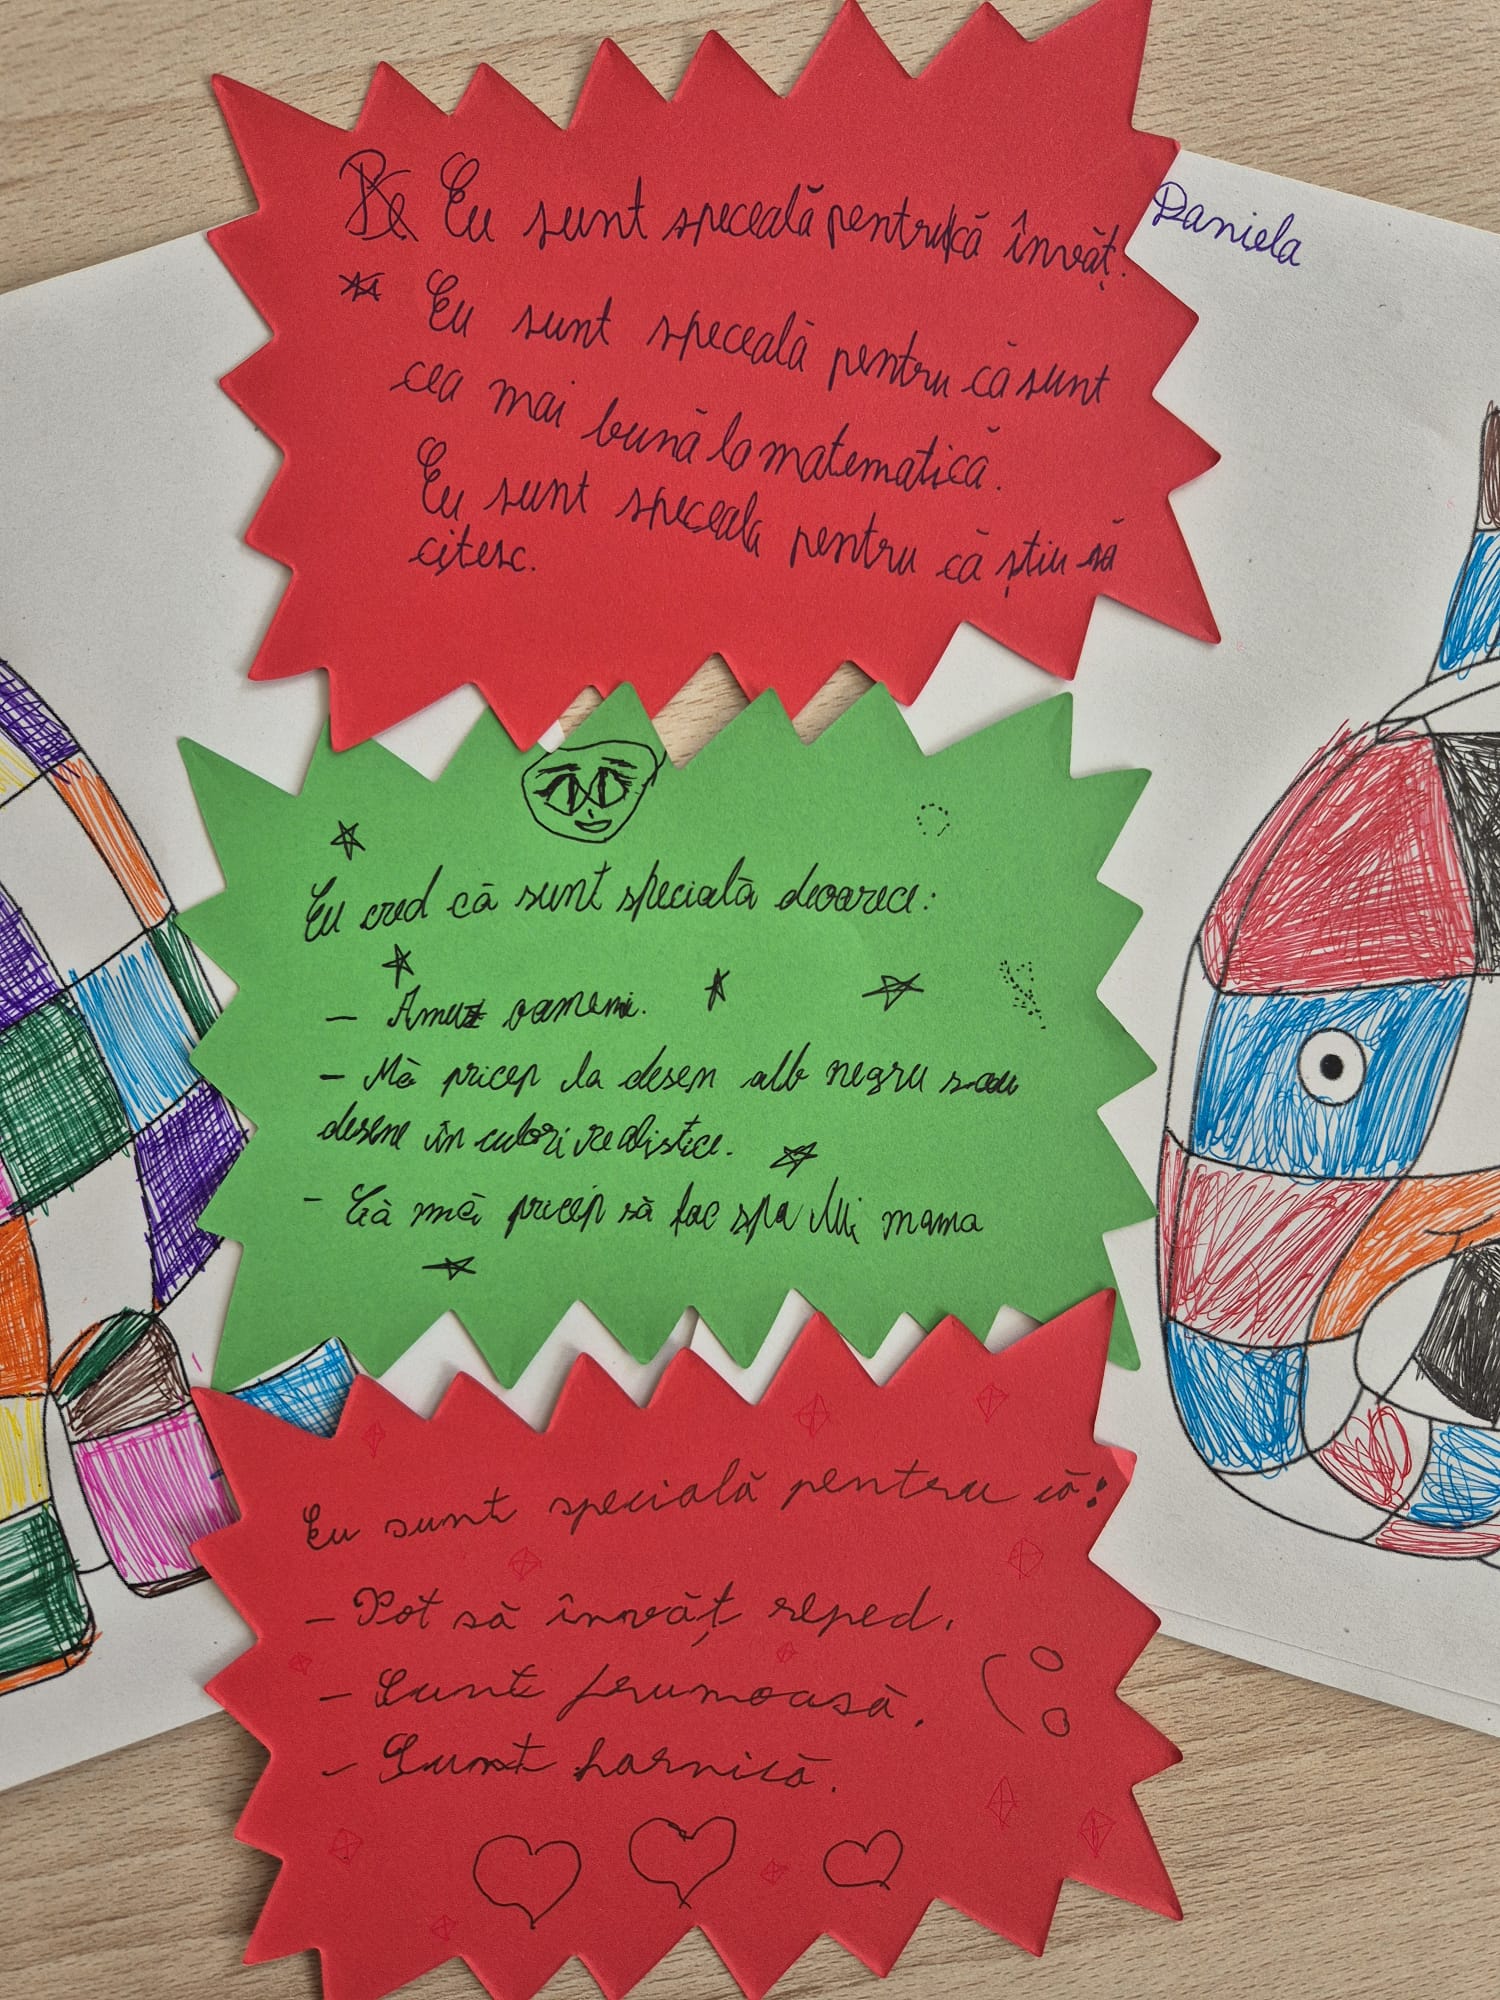 Eu sunt speceală pentrucă învăț.
Daniela
Eu sunt speceală pentru că sunt
cea mai bună la matematică.
Eu sunt speceala pentru că știu să
citesc.
Eu cred că sunt specială deoarece:
– Amuz oamenii.
– Mă pricep la desen alb negru sau
desene în culori realistice.
– Că mă pricep să fac spa lui mama
Eu sunt specială pentru că:
– Pot să învăț reped.
– Sunt frumoasă.
– Sunt harnică.